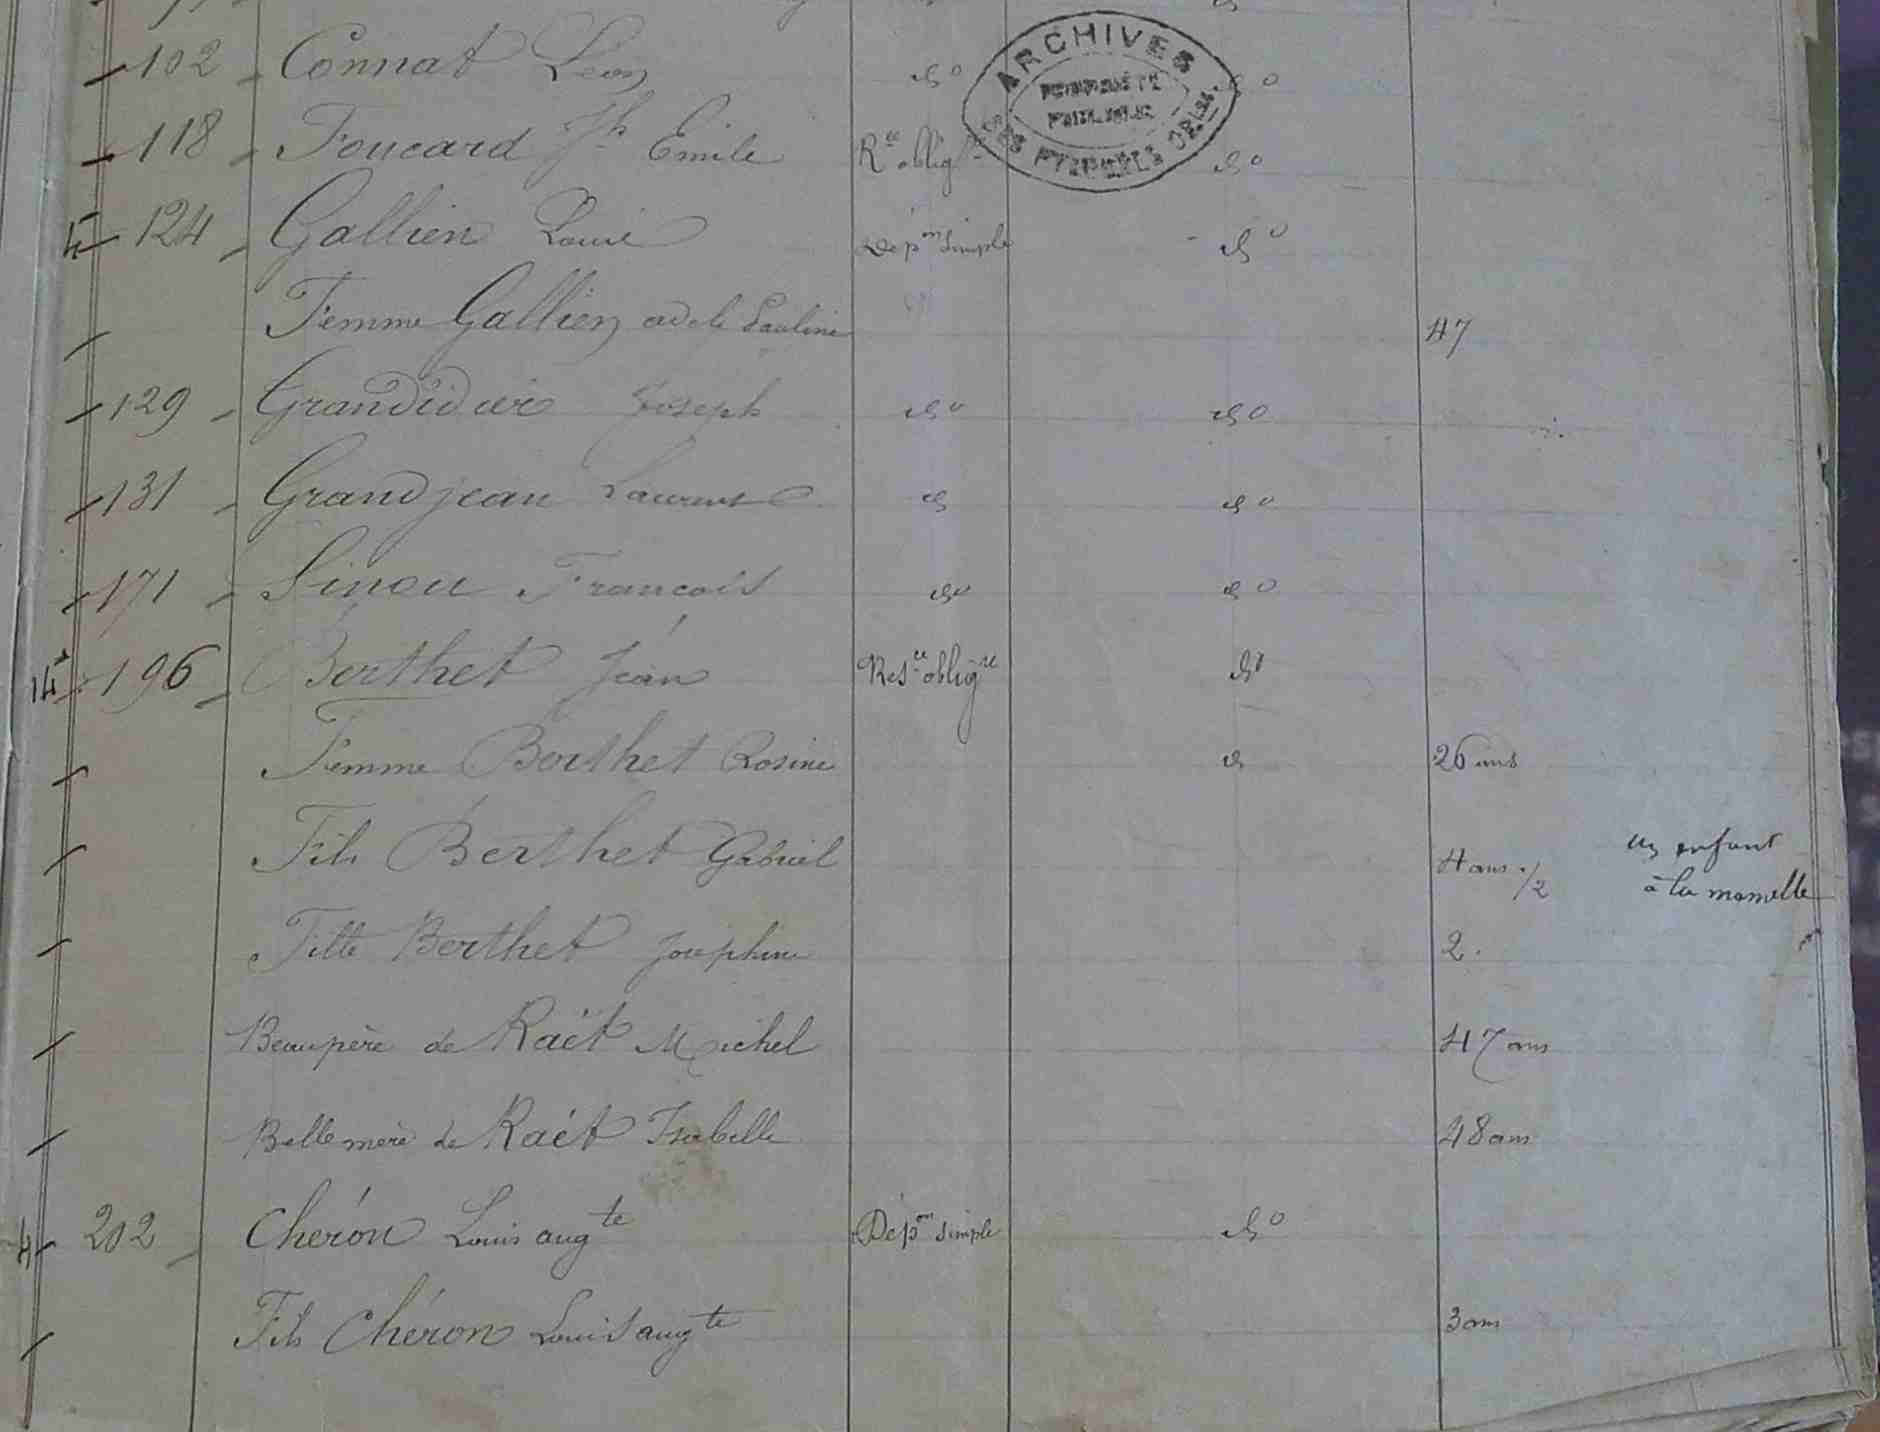 102 Connat Léon do do
ARCHIVES
118 Foucard Jh Emile Rce obligre do
124 Gallien Louis Dépon simple do
Femme Gallien adele Pauline 47
129 Grandidier Joseph do do
131 Grandjean Laurent d do
171 Sinou Francois do do
14 196 Berthet Jean Resce obligre do
Femme Berthet Rosine d 26 ans
Fils Berthet Gabriel 4 ans 1/2 un enfant
à la mamelle
Fille Berthet Josephine 2.
Beaupère de Raët Michel 47 ans
Belle mère de Raët Isabelle 48 ans
4 202 Chéron Louis augte Dépon simple do
Fils Chéron Louis augte 3 ans